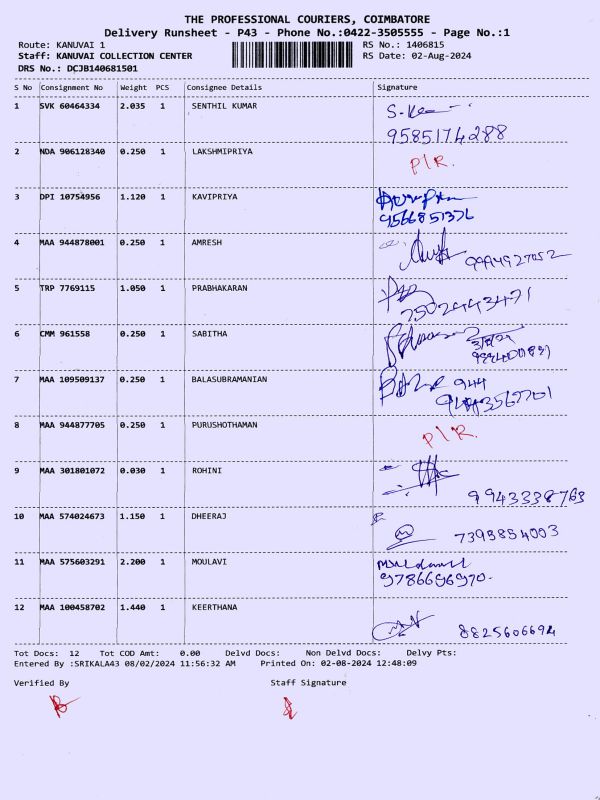 THE PROFESSIONAL COURIERS, COIMBATORE
Delivery Runsheet - P43 - Phone No.:0422-3505555 - Page No.:1
Route: KANUVAI 1
RS No.: 1406815
Staff: KANUVAI COLLECTION CENTER
RS Date: 02-Aug-2024
DRS No.: DCJB140681501
S No Consignment No Weight PCS Consignee Details Signature
1 SVK 60464334 2.035 1 SENTHIL KUMAR
9585174288
2 NDA 906128340 0.250 1 LAKSHMIPRIYA P/R.
3 DPI 10754956 1.120 1 KAVIPRIYA
9566851376
4 MAA 944878001 0.250 1 AMRESH 9994927052
5 TRP 7769115 1.050 1 PRABHAKARAN
7502443471
6 CMM 961558 0.250 1 SABITHA
7 MAA 109509137 0.250 1 BALASUBRAMANIAN
944
8 MAA 944877705 0.250 1 PURUSHOTHAMAN P/R.
9 MAA 301801072 0.030 1 ROHINI
9943338763
10 MAA 574024673 1.150 1 DHEERAJ
7393854003
11 MAA 575603291 2.200 1 MOULAVI
9786696970.
12 MAA 100458702 1.440 1 KEERTHANA
8825606694
Tot Docs: 12 Tot COD Amt: 0.00 Delvd Docs: Non Delvd Docs: Delvy Pts:
Entered By :SRIKALA43 08/02/2024 11:56:32 AM Printed On: 02-08-2024 12:48:09
Verified By Staff Signature